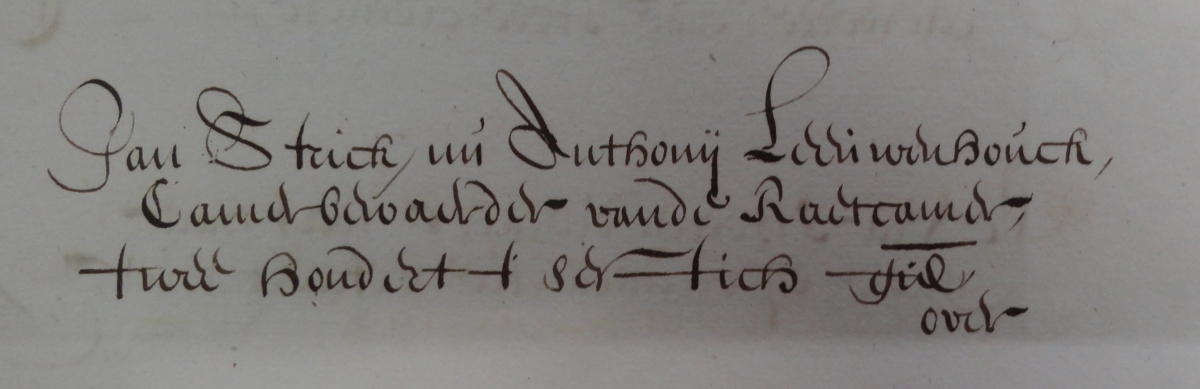 Jan Strick, nú Anthonij Leeúwenhoúck,
Camerbewaerder vande Raetcamer,
twee hondert t sestich gúl
over